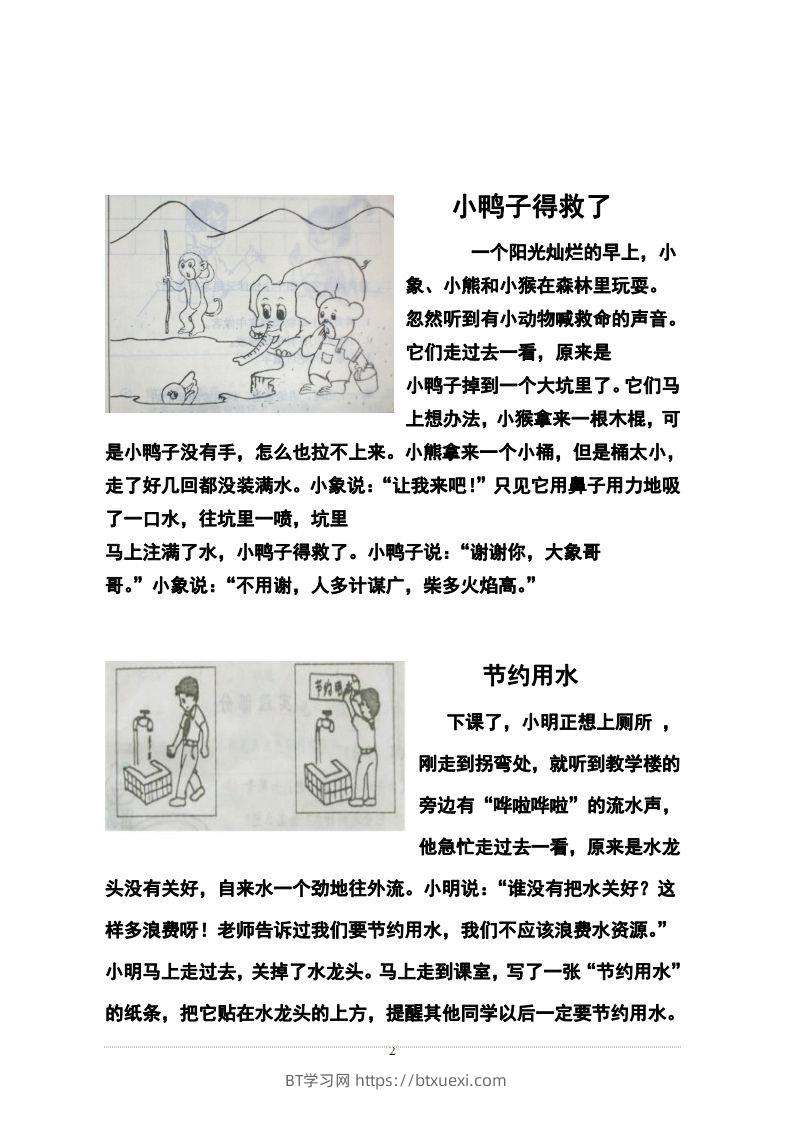 小鸭子得救了
一个阳光灿烂的早上，小
象、小熊和小猴在森林里玩耍。
忽然听到有小动物喊救命的声音。
它们走过去一看，原来是
小鸭子掉到一个大坑里了。它们马
上想办法，小猴拿来一根木棍，可
是小鸭子没有手，怎么也拉不上来。小熊拿来一个小桶，但是桶太小，
走了好几回都没装满水。小象说：“让我来吧！”只见它用鼻子用力地吸
了一口水，往坑里一喷，坑里
马上注满了水，小鸭子得救了。小鸭子说：“谢谢你，大象哥
哥。”小象说：“不用谢，人多计谋广，柴多火焰高。”
节约用水
节约用水
下课了，小明正想上厕所 ，
刚走到拐弯处，就听到教学楼的
旁边有“哗啦哗啦”的流水声，
他急忙走过去一看，原来是水龙
头没有关好，自来水一个劲地往外流。小明说：“谁没有把水关好？这
样多浪费呀！老师告诉过我们要节约用水，我们不应该浪费水资源。”
小明马上走过去，关掉了水龙头。马上走到课室，写了一张“节约用水”
的纸条，把它贴在水龙头的上方，提醒其他同学以后一定要节约用水。
2
BT学习网 https://btxuexi.com